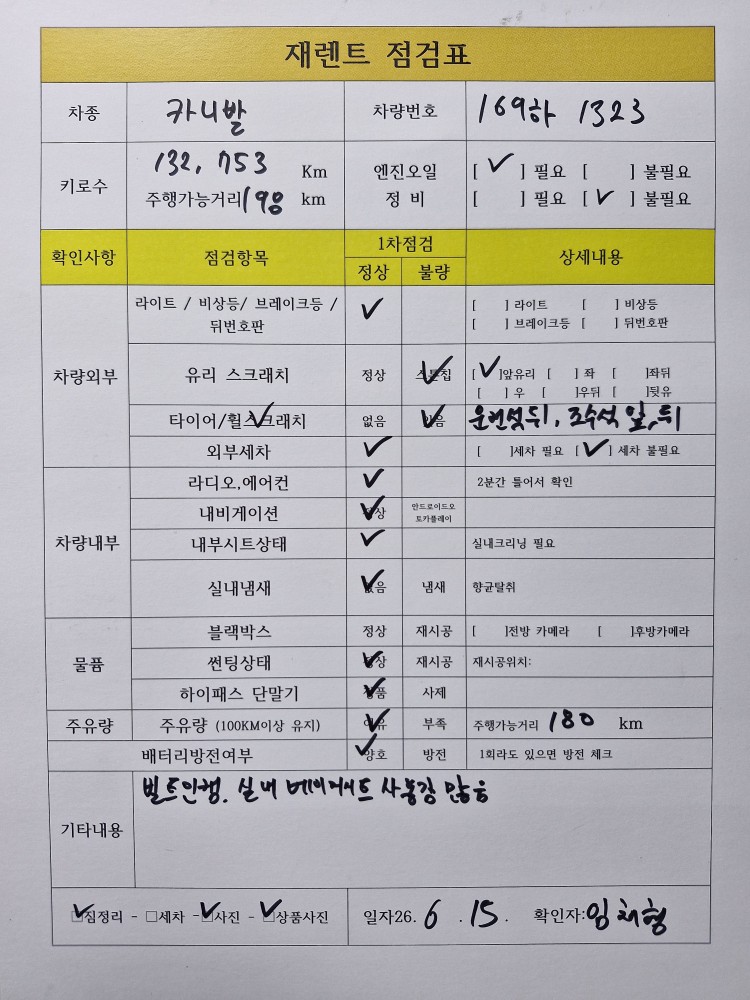 재렌트 점검표
차종 카니발 차량번호 169하 1323
키로수 132,753 Km 엔진오일 [ ✓ ] 필요 [ ] 불필요
주행가능거리 190 km 정 비 [ ] 필요 [ ✓ ] 불필요
확인사항 점검항목 1차점검 상세내용
정상 불량
차량외부 라이트 / 비상등/ 브레이크등 / ✓ [ ] 라이트 [ ] 비상등
뒤번호판 [ ] 브레이크등 [ ] 뒤번호판
유리 스크래치 정상 스톤칩 ✓ [ ✓ ]앞유리 [ ] 좌 [ ]좌뒤
[ ] 우 [ ]우뒤 [ ]뒷유
타이어/휠스크래치 ✓ 없음 있음 ✓ 운전석 뒤, 조수석 앞, 뒤
외부세차 ✓ [ ]세차 필요 [ ✓ ] 세차 불필요
차량내부 라디오,에어컨 ✓ 2분간 틀어서 확인
내비게이션 정상 ✓ 안드로이드오
토카플레이
내부시트상태 ✓ 실내크리닝 필요
실내냄새 없음 ✓ 냄새 향균탈취
물품 블랙박스 정상 재시공 [ ]전방 카메라 [ ]후방카메라
썬팅상태 정상 ✓ 재시공 재시공위치:
하이패스 단말기 정품 ✓ 사제
주유량 주유량 (100KM이상 유지) 여유 ✓ 부족 주행가능거리 180 km
배터리방전여부 양호 ✓ 방전 1회라도 있으면 방전 체크
기타내용 빌트인캠. 실내 사용감 많음
✓ □짐정리 - □세차 - ✓ □사진 - ✓ □상품사진 일자26. 6 . 15 . 확인자: 임채형